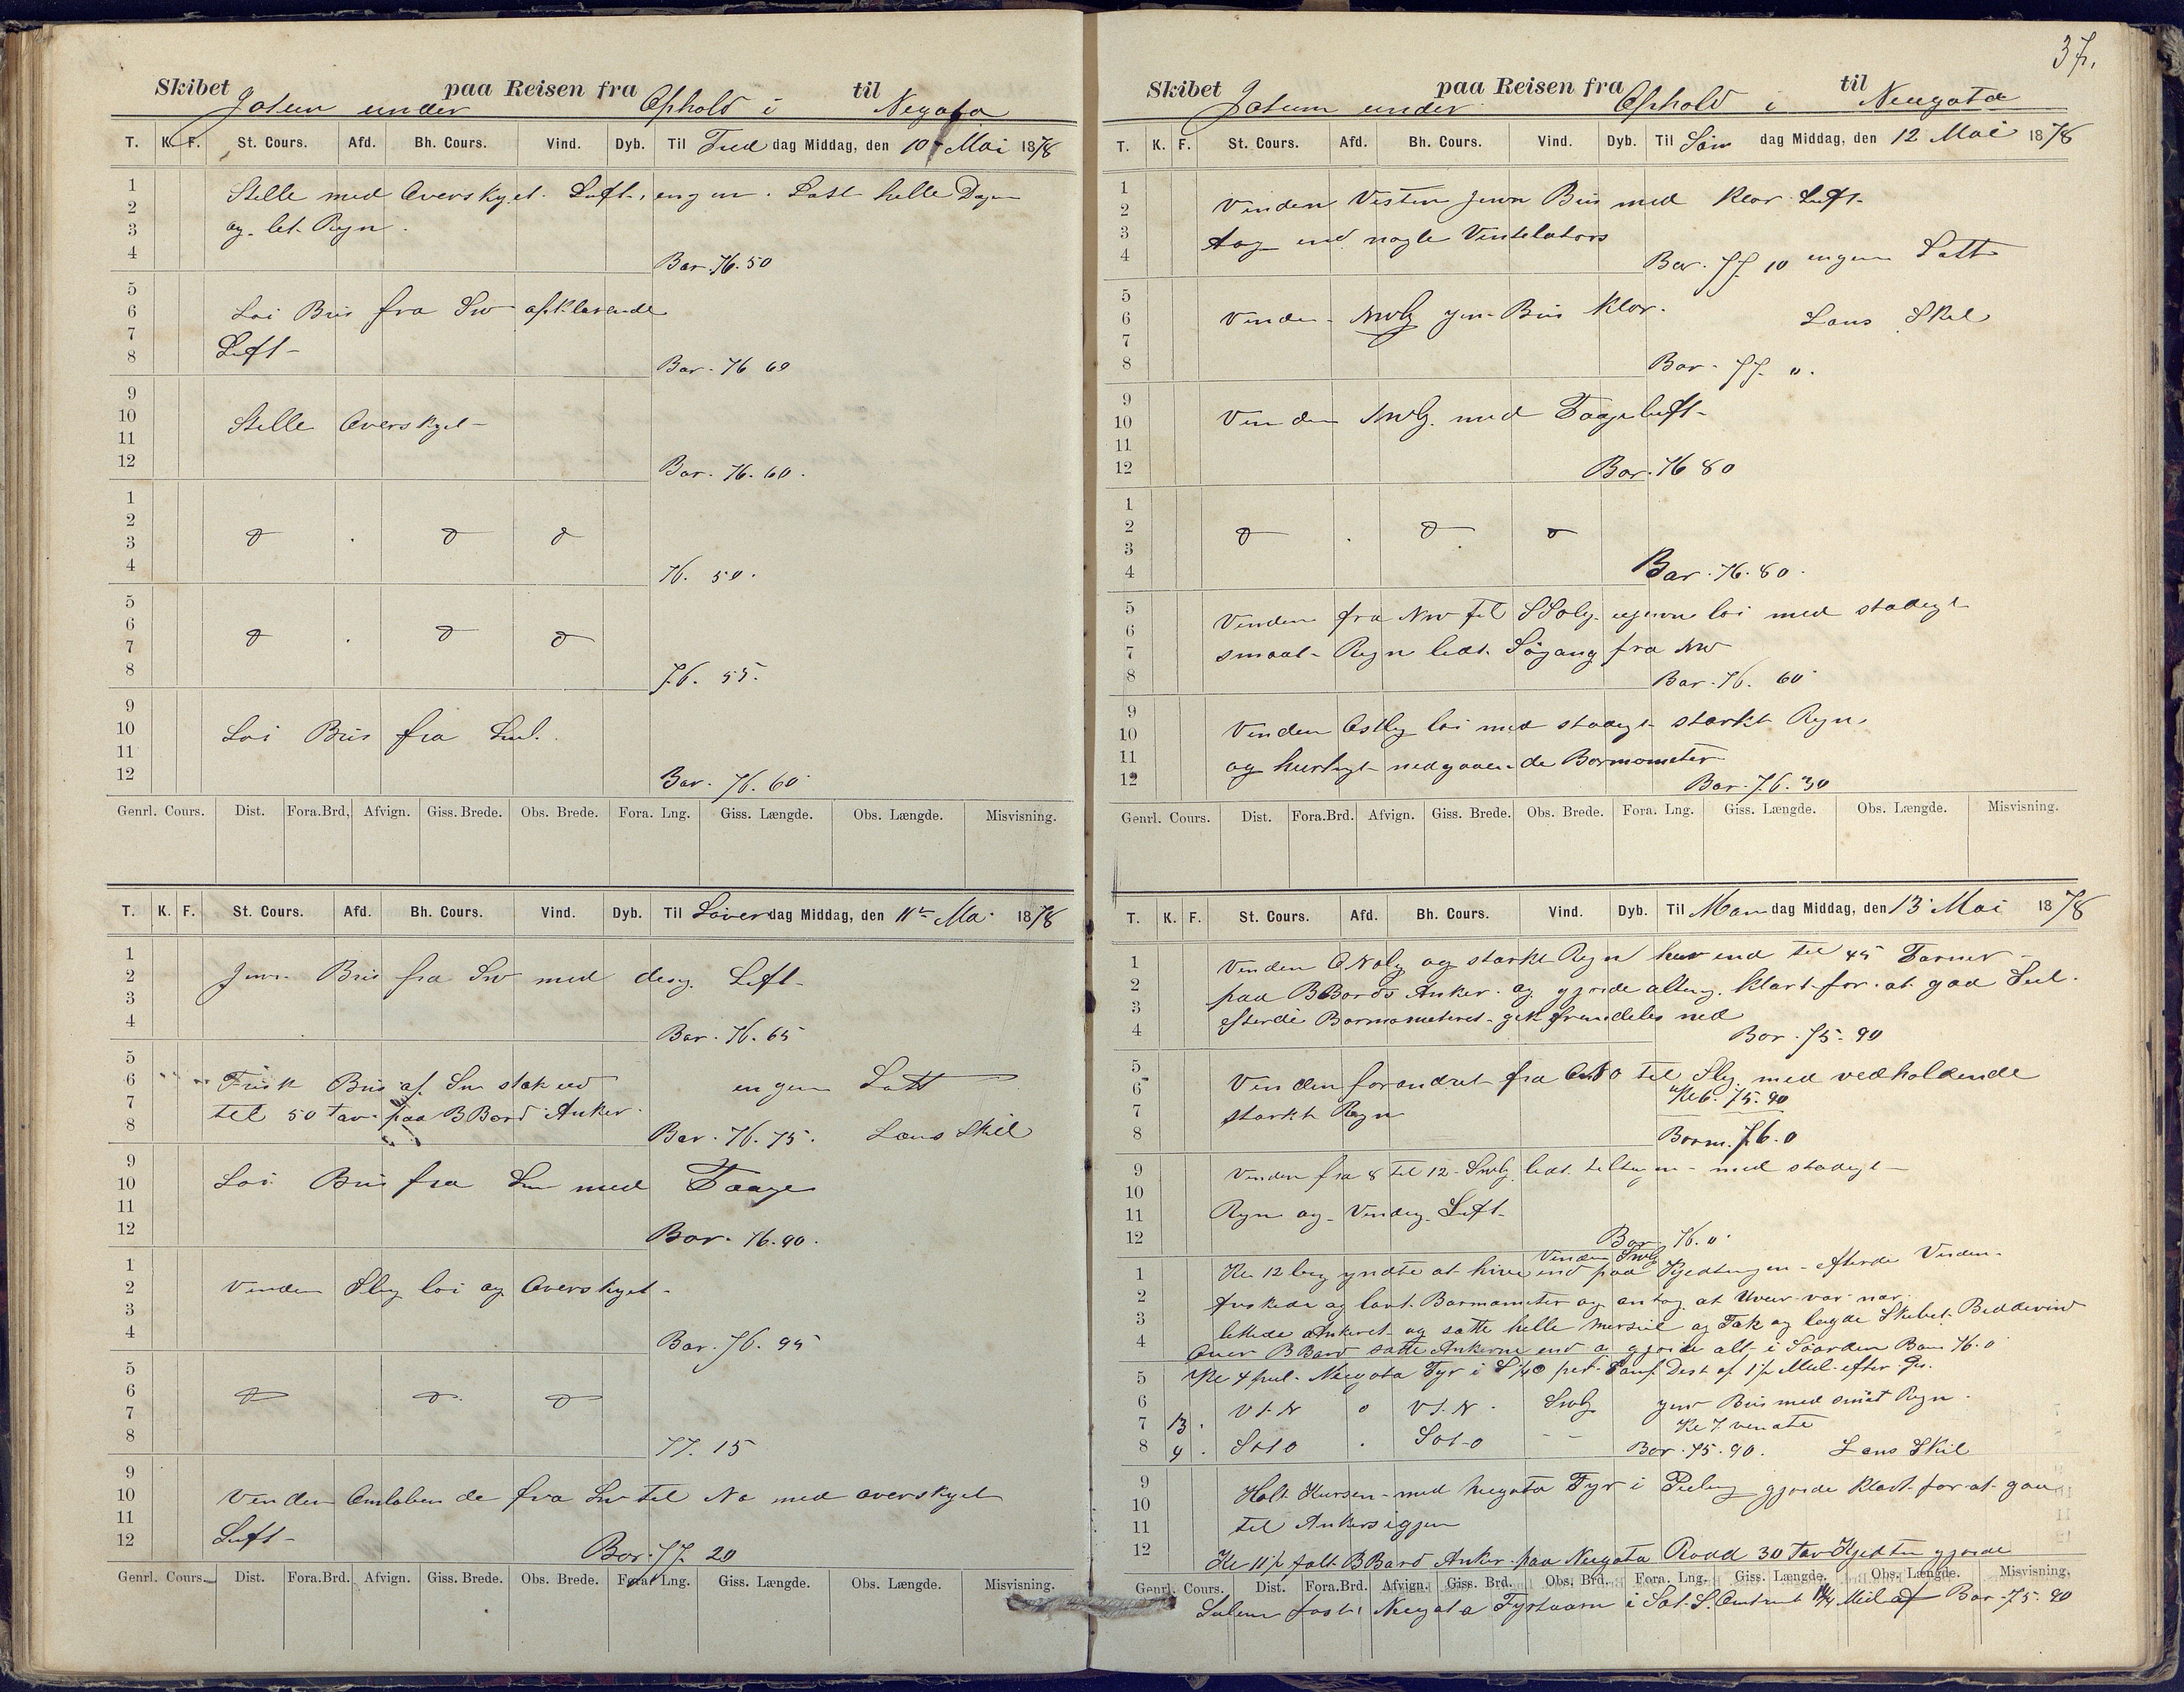 Skibet Jotun under paa Reisen fra Ophold i til Neegata
T. K. F. St. Cours. Afd. Bh. Cours. Vind. Dyb. Til Freddag Middag, den 10 Mai 1878
1
2
3
4
Stille med Overskyet Luft, engen Last helle Dagen
og let Regn.
Bar. 76.50
5
6
7
8
Løi Bris fra SW opklarende
Luft
Bar. 76 60
9
10
11
12
Stille Overskyet
Bar. 76.60.
1
2
3
4
d . d d
76. 50.
5
6
7
8
d . d d
76. 55.
9
10
11
12
Løi Bris fra
Bar. 76.60
Genrl. Cours. Dist. Fora.Brd, Afvign. Giss. Brede. Obs. Brede. Fora. Lng. Giss. Længde. Obs. Længde. Misvisning.
T. K. F. St. Cours. Afd. Bh. Cours. Vind. Dyb. Til Løverdag Middag, den 11te Mai 1878
1
2
3
4
Jevn Bris fra SW med disig Luft
Bar. 76.65
5
6
7
8
Frisk Bris af SW stak ud engen Last
til 50 Fav. paa BBord Anker.
Bar. 76.75. Læns Skib
9
10
11
12
Løi Bris fra SW med Taage
Bar. 76.90.
1
2
3
4
Vinden Slig løi og Overskyet
Bar. 76. 95
5
6
7
8
d d d
77. 15
9
10
11
12
Vinden Omløbende fra SW til NO med overskyet
Luft
Bar. 77 20
Genrl. Cours. Dist. Fora.Brd. Afvign. Giss. Brede. Obs. Brede. Fora. Lng. Giss. Længde. Obs. Længde. Misvisning.
37.
Skibet Jotun under paa Reisen fra Ophold i til Neegata
T. K. F. St. Cours. Afd. Bh. Cours. Vind. Dyb. Til Søndag Middag, den 12 Mai 1878
1
2
3
4
Vinden Vesten Jevn Bris med klar Luft
tog ind nogle Ventelators
Bar. 77 10 engen Last
5
6
7
8
Vinden NWlig jevn Bris klar. Læns Skib
Bar. 77. 0.
9
10
11
12
Vinden NWlig med Taageluft
Bar. 76 80
1
2
3
4
d . d d
Bar. 76.80.
5
6
7
8
Vinden fra NW til SSolig ujevn løi med stadigt
smaat Regn lidt Søgang fra NW
Bar. 76. 60
9
10
11
12
Vinden Østlig løi med stadigt stærkt Regn
og hurtigt nedgaaende Barmometer
Bar. 76.30
Genrl. Cours. Dist. Fora.Brd. Afvign. Giss. Brede. Obs. Brede. Fora. Lng. Giss. Længde. Obs. Længde. Misvisning.
T. K. F. St. Cours. Afd. Bh. Cours. Vind. Dyb. Til Mandag Middag, den 13 Mai 1878
1
2
3
4
Vinden ONolig og stærkt Regn hev ind til 45 Favner
paa BBords Anker og gjorde alting klart for at gaa Seil
efterdi Barmometeret gik fremdeles ned
Bar. 75.90
5
6
7
8
Vinden forandret fra ONO til Slig med vedholdende
Kl 6. 75.90
stærkt Regn
Barm. 76.0
9
10
11
12
Vinden fra 8 til 12 SWlig lidt med stadigt
Regn og Vindig Luft
Bar. 76.0
1
2
3
4
Vinden SWlig
Kl 12 begyndte at hive ind paa Kjedtingen efterdi Vinden
friskede og lavt Barmometer og antog at Uveir var nær
lettede Ankeret og satte helle Mersseil og Fok og lagde Skibet Beddevind
over BBord satte Ankerne ind og gjorde alt i Søorden Bar 76.0
5
Kl 4 peil. Neegata Fyr i S 1/4 O Dist af 1 1/2 Mil efter
6
7
8
VtN 0 VtN. SWlig jevn Bris med smaat Regn.
13. Kl 7 vendte
4. SOtO . SOtO - - Bar. 75.90. Læns Skib
9
10
11
12
Holt Kursen med Neegata Fyr i Peiling gjorde klart for at gaa
til Ankers igjen
Kl 11 1/2 falt BBord Anker paa Neegata Road 30 Fav Kjedting gjorde
Genrl. Cours. Dist. Fora.Brd. Afvign. Giss. Brd. Obs. Brd. Fora. Lng. Giss. Længde. Obs. Længde. Misvisning.
Seilene fast, Neegata Fyrtaarn i Mil af Bar. 75.90